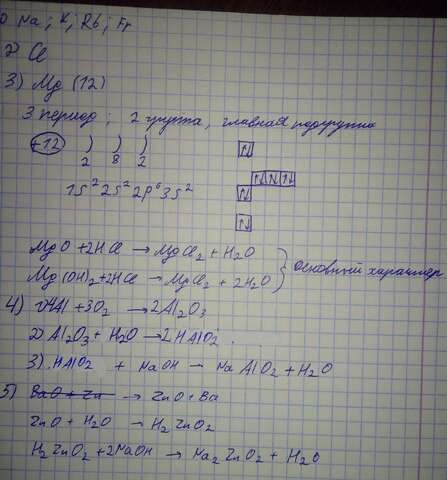 Na; K; Rb; Fr
2) Cl
3) Mg (12)
3 период; 2 группа, главная подгруппа
+12 ) ) )
2 8 2
1s² 2s² 2p⁶ 3s²
MgO + 2HCl → MgCl₂ + H₂O
Mg(OH)₂ + 2HCl → MgCl₂ + 2H₂O } основный характер
4) 1) 4Al + 3O₂ → 2Al₂O₃
2) Al₂O₃ + H₂O → 2HAlO₂.
3) HAlO₂ + NaOH → NaAlO₂ + H₂O
5) BaO + Zn → ZnO + Ba
ZnO + H₂O → H₂ZnO₂
H₂ZnO₂ + 2NaOH → Na₂ZnO₂ + H₂O